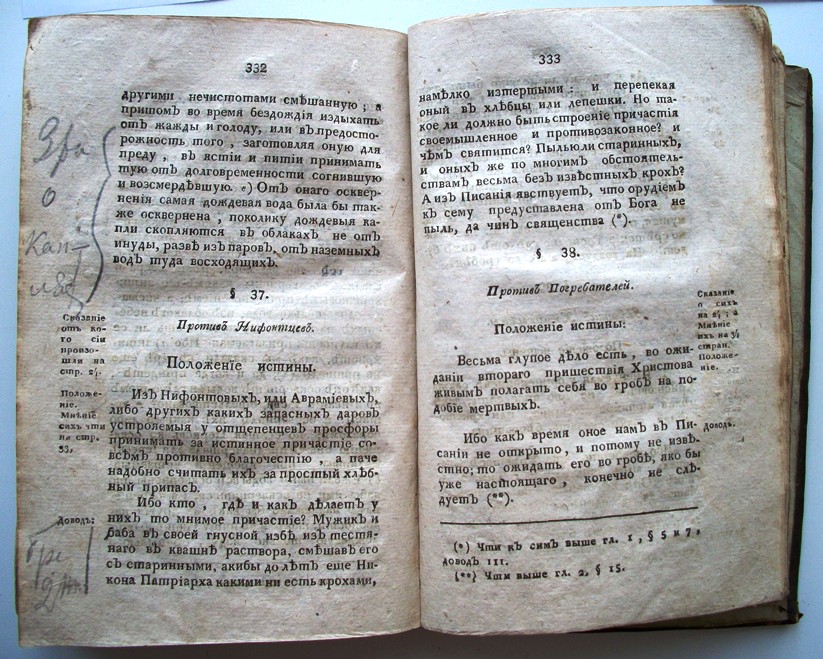 332
другими нечистотами смѣшанную; а
притомъ во время бездождія издыхать
отъ жажды и голоду, или въ предосто-
рожность того, заготовляя оную для
преду, въ ястіи и питіи принимать
тую отъ долговременности согнившую
и возсмердѣвшую. Отъ онаго оскверн-
ненія самая дождевая вода была бы так-
же осквернена, поколику дождевыя ка-
пли скопляются въ облакахъ не отъ
инуды, развѣ изъ паровъ, отъ наземныхъ
водъ туда восходящихъ.
§ 37.
Сказаніе
отъ ко-
го сіи
произо-
шли на
стр.
Противъ Нифонтцевъ.
Положеніе истины.
Положе-
ніе.
Мнѣніе
сихъ чти
на стр.
53,
Изъ Нифонтовыхъ, или Авраміевыхъ,
либо другихъ какихъ запасныхъ даровъ
устрояемыя у отщепенцевъ просфоры
принимать за истинное причастіе со-
всѣмъ противно благочестію, а паче
надобно считать ихъ за простый хлѣб-
ный припасъ.
Доводъ:
Ибо кто, гдѣ и какъ дѣлаетъ у
нихъ то мнимое причастіе? Мужикъ и
баба въ своей гнусной избѣ, изъ тестя-
наго въ квашнѣ раствора, смѣшавъ его
съ старинными, акибы до лѣтъ еще Ни-
кона Патріарха какими ни есть крохами,
333
намѣлко изтертыми: и перепекая
оный въ хлѣбцы или лепешки. Но та-
кое ли должно быть строеніе причастія
своемышленное и противозаконное? и
чѣмъ святится? Пылью ли старинныхъ,
и оныхъ же по многимъ обстоятель-
ствамъ весьма безъизвѣстныхъ крохъ?
А изъ Писанія явствуетъ, что орудіемъ
къ сему предуставлена отъ Бога не
пыль, да чинъ священства (*).
§ 38.
Противъ Погребателей.
Сказаніе
о сихъ
на
Мнѣніе
ихъ на
стран.
Положе-
ніе.
Положеніе истины:
Весьма глупое дѣло есть, во ожи-
даніи втораго пришествія Христова
живымъ полагать себя во гробъ на по-
добіе мертвыхъ.
Доводъ.
Ибо какъ время оное намъ въ Пи-
саніи не открыто, и потому не извѣ-
стно; то ожидать его во гробѣ, яко бы
уже настоящаго, конечно не слѣ-
дуетъ (**).
(*) Чти къ симъ выше гл. 1, § 5 и 7,
доводъ III.
(**) Чти выше гл. 2, § 15.